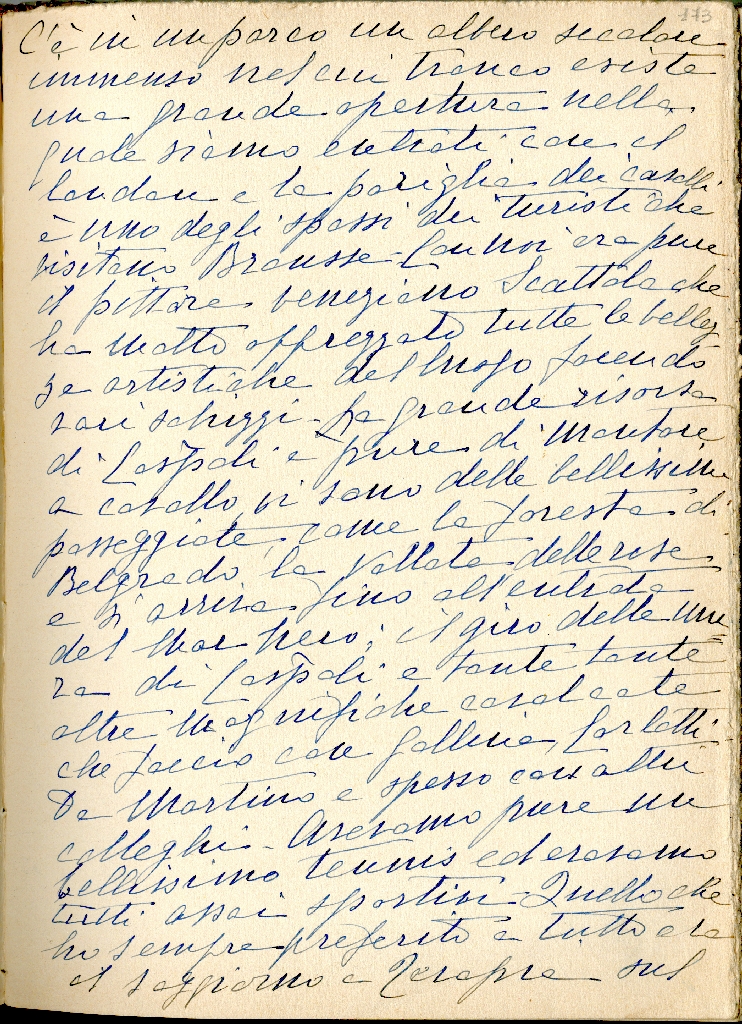 173
C'è in un parco un albero secolare
immenso nel cui tronco esiste
una grande apertura nella
quale siamo entrati con il
landau e la pariglia dei cavalli
è uno degli spassi dei turisti che
visitano Brousse - Con noi era pure
il pittore veneziano Scattola che
ha molto apprezzato tutte le bellez
ze artistiche del luogo facendo
vari schizzi - La grande risorsa
di Cospoli è pure di montare
a cavallo, vi sono delle bellissime
passeggiate, come la foresta di
Belgrado, la vallata delle rose
e si arriva fino all'entrata
del Mar Nero; il giro delle mu=
ra di Cospoli e tante tante
altre magnifiche cavalcate
che faccio con Gallina, Carlotti
De Martino e spesso con altri
colleghi - Avevamo pure un
bellissimo tennis ed eravamo
tutti assai sportivi - Quello che
ho sempre preferito a tutto era
il soggiorno a Terapia sul